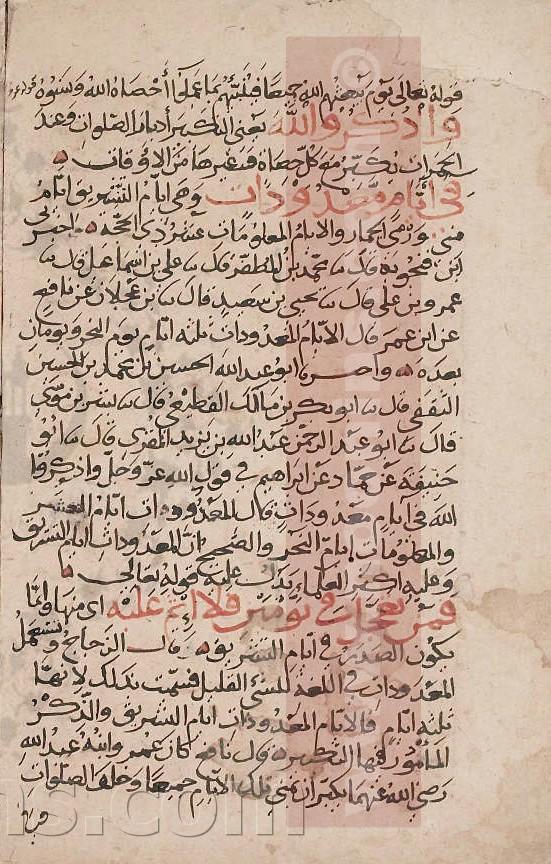 قوله تعالى يوم يبعثهم الله جميعا فينبئهم بما عملوا أحصاه الله ونسوه قوله عز
واذكروا الله يعني التكبير أدبار الصلوات وعند
الجمرات يكبر مع كل حصاة وغيرها من الاوقات
في أيام معدودات وهي أيام التشريق ايام
منى ورمي الجمار والايام المعلومات عشر ذي الحجة اخبرني
ابن فنجويه قال محمد بن المظفر قال علي بن اسماعيل قال
عمرو بن علي قال يحيى بن سعيد قال بن عجلان عن نافع
عن ابن عمر قال الايام المعدودات ثلثه ايام يوم النحر ويومان
بعده واخبرنا ابو عبد الله الحسين بن محمد بن الحسين
الثقفي قال ابو بكر بن مالك القطيعي قال بشر بن موسى
قال ابو عبد الرحمن عبد الله بن يزيد المقرئ قال ابو
حنيفة عن حماد عن ابراهيم في قول الله عز وجل واذكروا
الله في أيام معدودات قال المعدودات ايام العشر
والمعلومات ايام النحر والصحيح ان المعدودات ايام التشريق
وعليه اكثر العلماء يدل عليه قوله تعالى
فمن تعجل في يومين فلا اثم عليه اي منها وانما
يكون الصدر في ايام التشريق قال الزجاج وتستعمل
المعدودات في اللغة للشئ القليل فسميت بذلك لانها
ثلثه ايام فالايام المعدودات ايام التشريق والذكر
المأمور فيها التكبير قال نافع كان عمر وابنه عبد الله
رضي الله عنهما يكبران بمنى تلك الايام جميعا وخلف الصلوات
ns.com